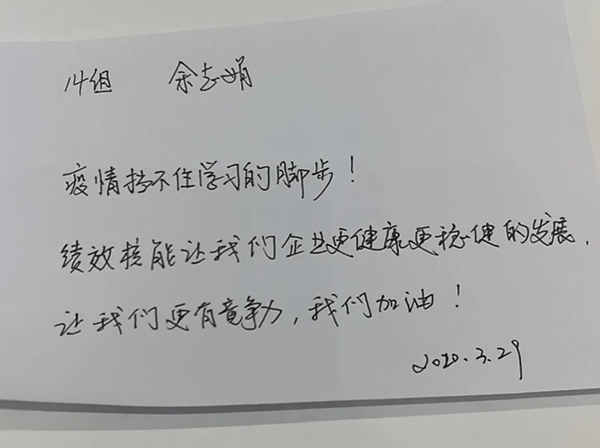 14组 余志娟
疫情挡不住学习的脚步！
绩效核能让我们企业更健康更稳健的发展，
让我们更有竞争力，我们加油！
2020.3.29